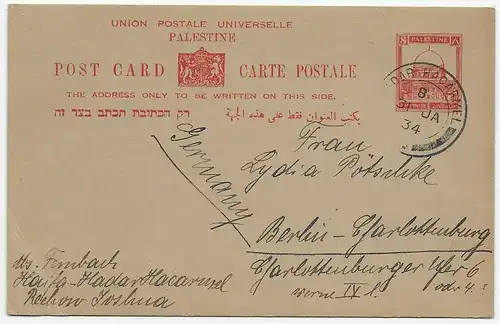 UNION POSTALE UNIVERSELLE
PALESTINE
POST CARD CARTE POSTALE
THE ADDRESS ONLY TO BE WRITTEN ON THIS SIDE.
רק הכתובת תכתב בצד זה يكتب العنوان فقط على هذه الجهة
8 PALESTINE
HADAR HACARMEL
8
31 JA
34
Germany
Frau
Lydia Pötschke
Berlin-Charlottenburg
Charlottenburger Ufer 6
IV l. oder 4.?
Haifa-Hadar Hacarmel
Rechow Joshua